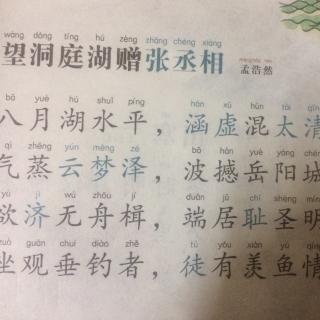 wàng dòng tíng hú zèng zhāng chéng xiàng
望洞庭湖赠张丞相 孟浩然
bā yuè hú shuǐ píng hán xū hùn tài qīng
八月湖水平，涵虚混太清
qì zhēng yún mèng zé bō hàn yuè yáng chéng
气蒸云梦泽，波撼岳阳城
yù jì wú zhōu jí duān jū chǐ shèng míng
欲济无舟楫，端居耻圣明
zuò guān chuí diào zhě tú yǒu xiàn yú qíng
坐观垂钓者，徒有羡鱼情